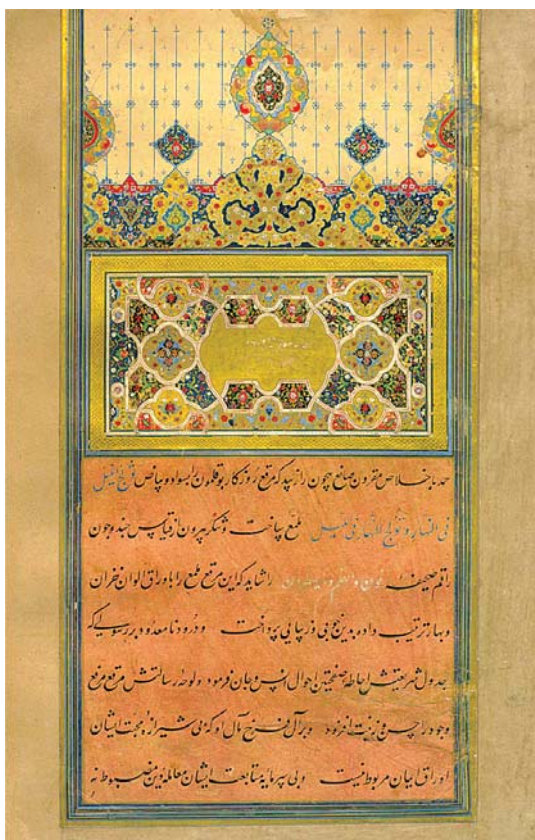 حمد باخلاص مقرون صانع بیچون را زیبد که مرقع روزگار بوقلمون را بسواد و بیاض تولج اللیل
فی النهار و تولج النهار فی اللیل ملمع ساخت و شکر بیرون از قیاس چند و چون
راقم صحیفه نون والقلم و ما یسطرون را شاید که این مرقع ملمع را باوراق الوان خزان
و بهار ترتیب داده بدین خوبی و زیبایی پرداخت و درود نامعدود بر رسولی که
جدول شریعتش احاطه صفحتین احوال انس و جان فرمود و لوحه رسالتش مرقع
وجود را و زینت افزود و بر آل فرخ مآل او که بی شیرازه محبت ایشان
اوراق ایمان مربوط نیست و بی متابعت ایشان معامله دین مضبوط نه